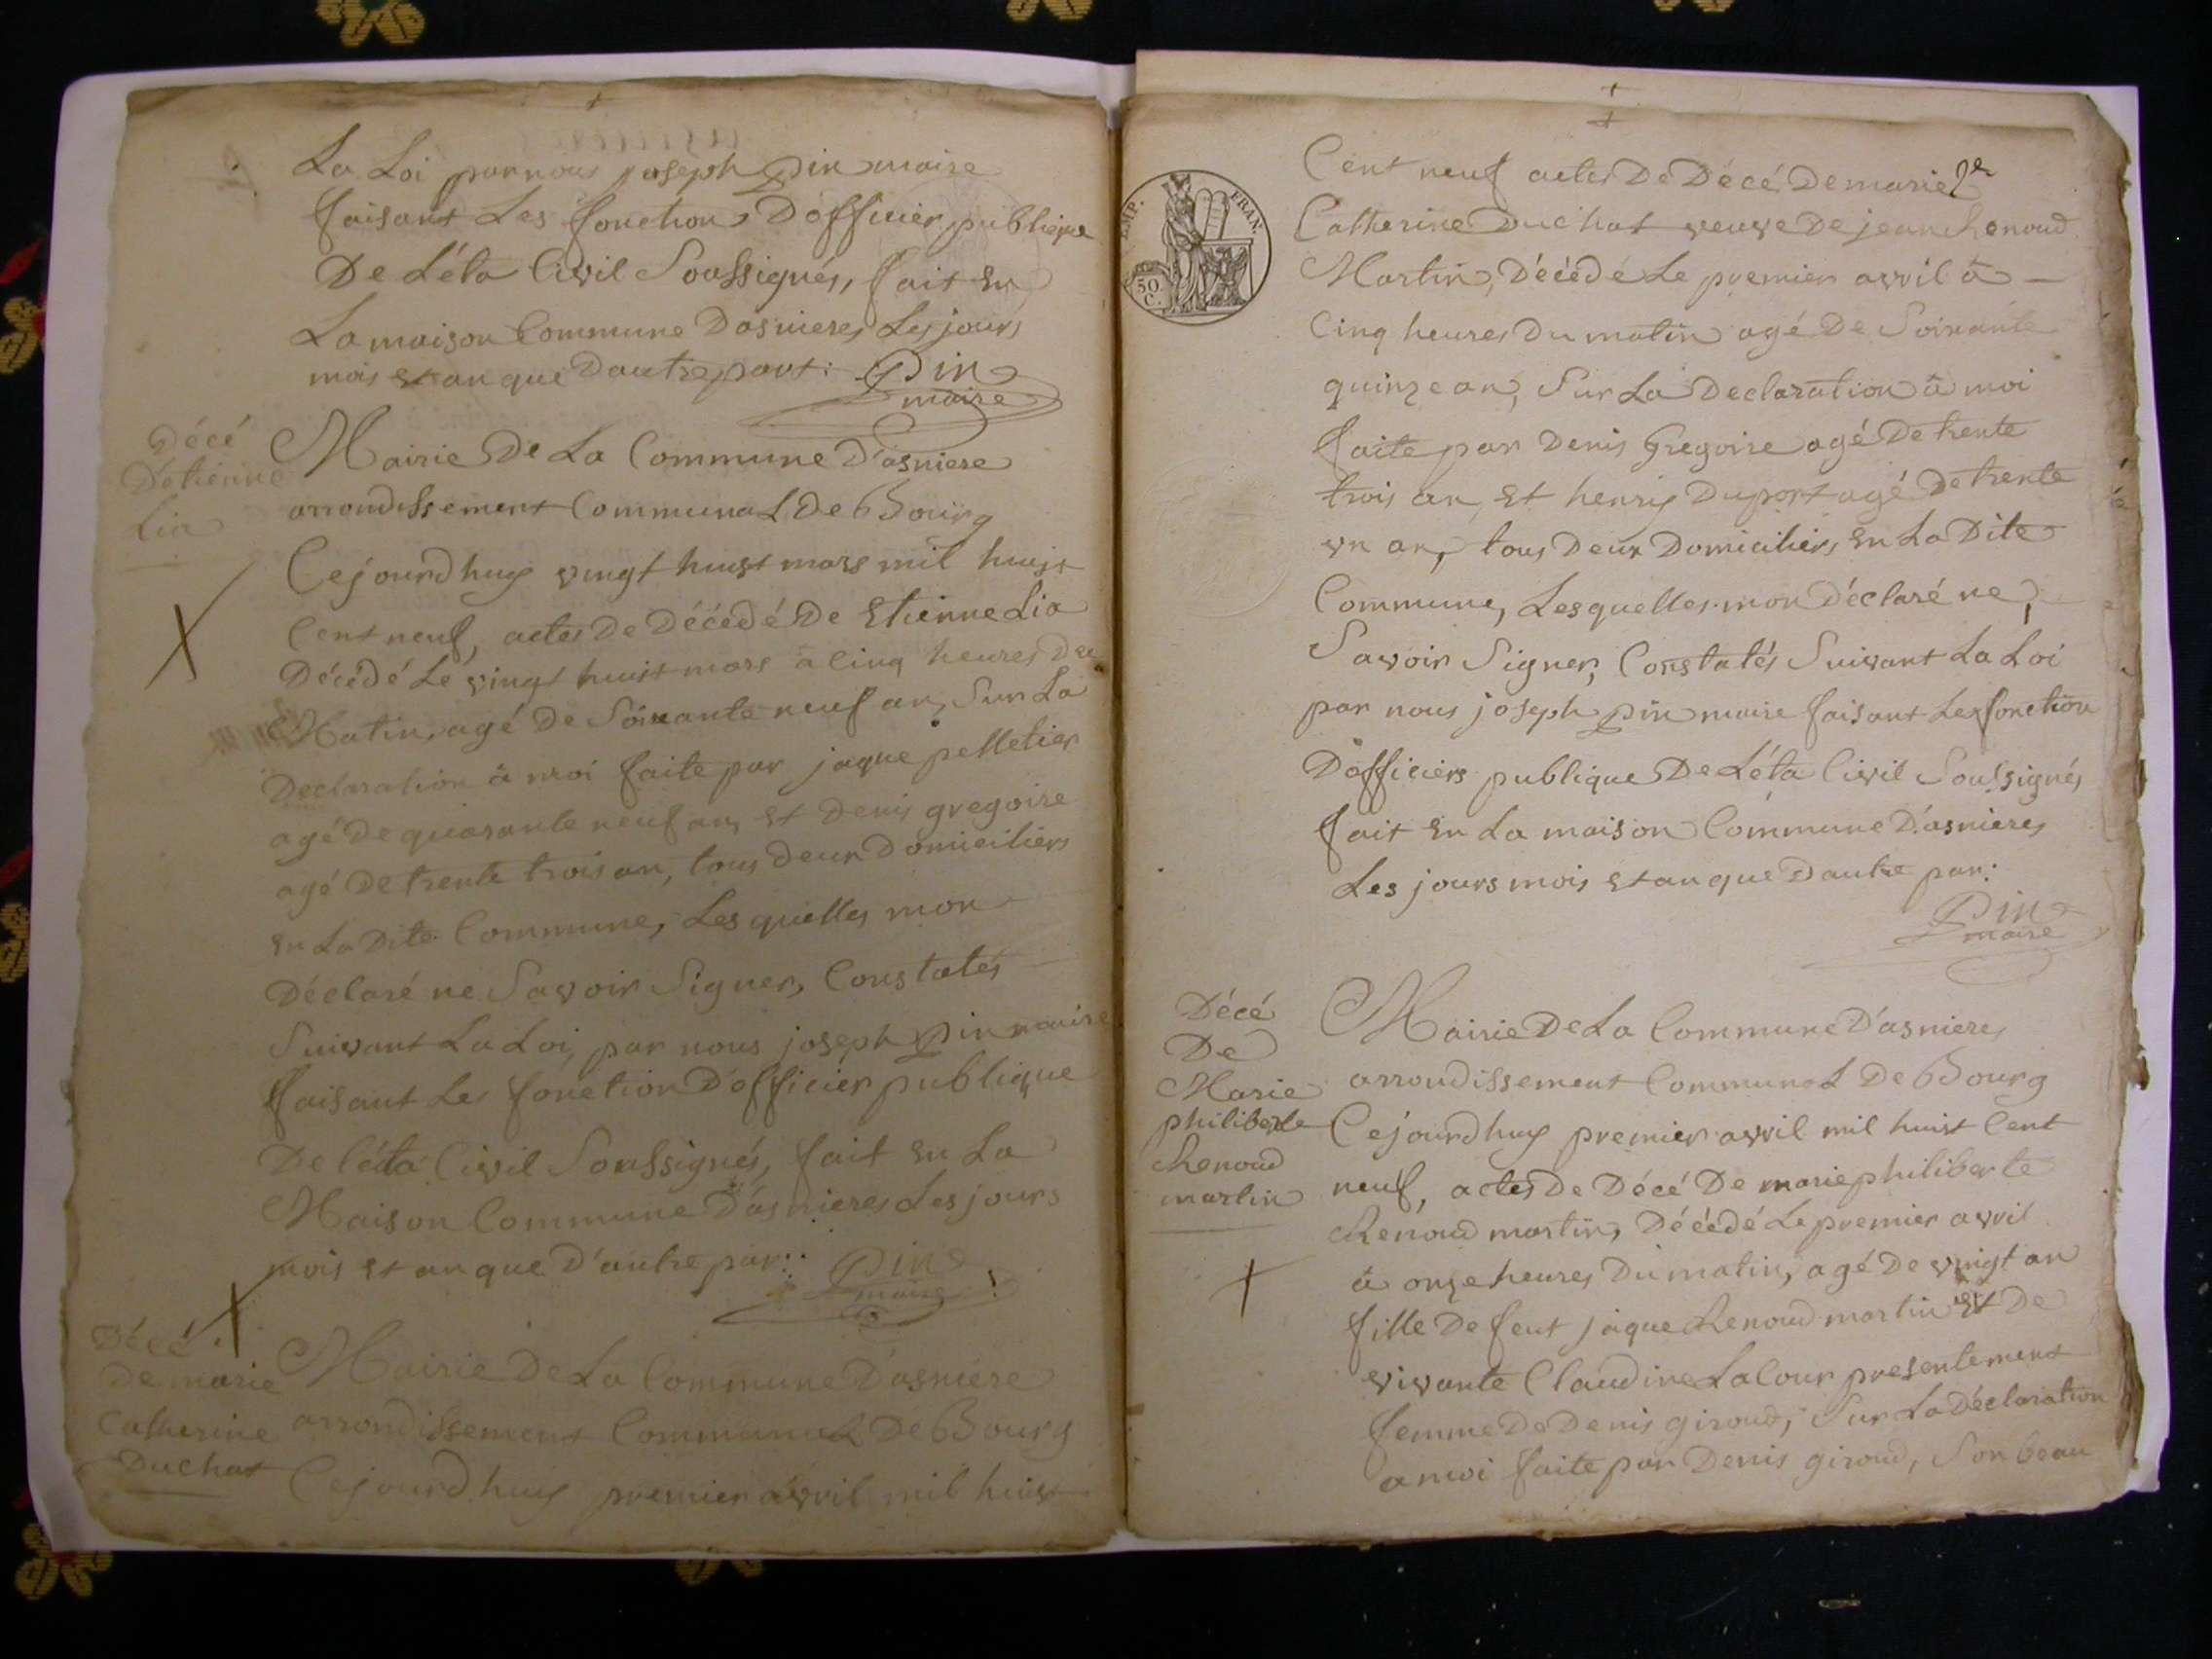 La Loi par nous joseph Pin maire
faisant Les fonction D'officier publique
De L'éta Civil Soussignés, fait En
La maison Commune Dasnieres Les jours
mois Et an que Dautre part: Pin
maire
Décé
D'etienne
Lia
Mairie De La Commune D'asniere
arrondissement Communal De Bourg
Cejourdhuy vingt huist mars mil huist
Cent neuf, actes De Décédé De Etienne Lia
Décédé Le vingt huist mars a Cinq heures Du
Matin, agé De Soixante neuf an, Sur La
Declaration à moi faite par jaque pelletier
agé De quarante neuf an, Et Denis gregoire
agé De trente trois an, tous Deux Domiciliers
En La Dite Commune, Les quelles mon
Déclaré ne Savoir Signer, Constatés
Suivant La Loi, par nous joseph Pin maire
faisant Les fonction D'officier publique
De L'éta Civil Soussignés, fait En La
Maison Commune D'asnieres Les jours
mois Et an que D'autre par: Pin
maire
Décé
De marie
Catherine
Duchat
Mairie De La Commune D'asniere
arrondissement Communal De Bourg
Cejourd.huy premier avril mil huist
EMP. FRAN.
50.
C.
Cent neuf actes De Décé De marie
Catherine Duchat veuve De jean Renoud
Martin, Décédé Le premier avril à
Cinq heures Du matin agé De Soixante
quinze an, Sur La Declaration à moi
faite par Denis Gregoire agé De trente
trois an, Et henry Duport agé De trente
un an, tous Deux Domiciliers En La Dite
Commune, Les quelles mon Déclaré ne
Savoir Signer, Constatés Suivant La Loi
par nous joseph Pin maire faisant Les fonction
D'officiers publique De L'éta Civil Soussignés
fait En La maison Commune D'asnieres
Les jours mois Et an que Dautre par:
Pin
maire
Décé
De
Marie
philiberte
Renoud
martin
Mairie De La Commune D'asnieres
arrondissement Communal De Bourg
Cejourdhuy premier avril mil huist Cent
neuf, actes De Décé De marie philiberte
Renoud martin, Décédé Le premier avril
à onze heures Du matin, agé De vingt an
fille De feut jaque Renoud martin Et De
vivante Claudine La Cour presentement
femme De Denis giroud, Sur La Déclaration
a moi faite par Denis giroud, Son beau